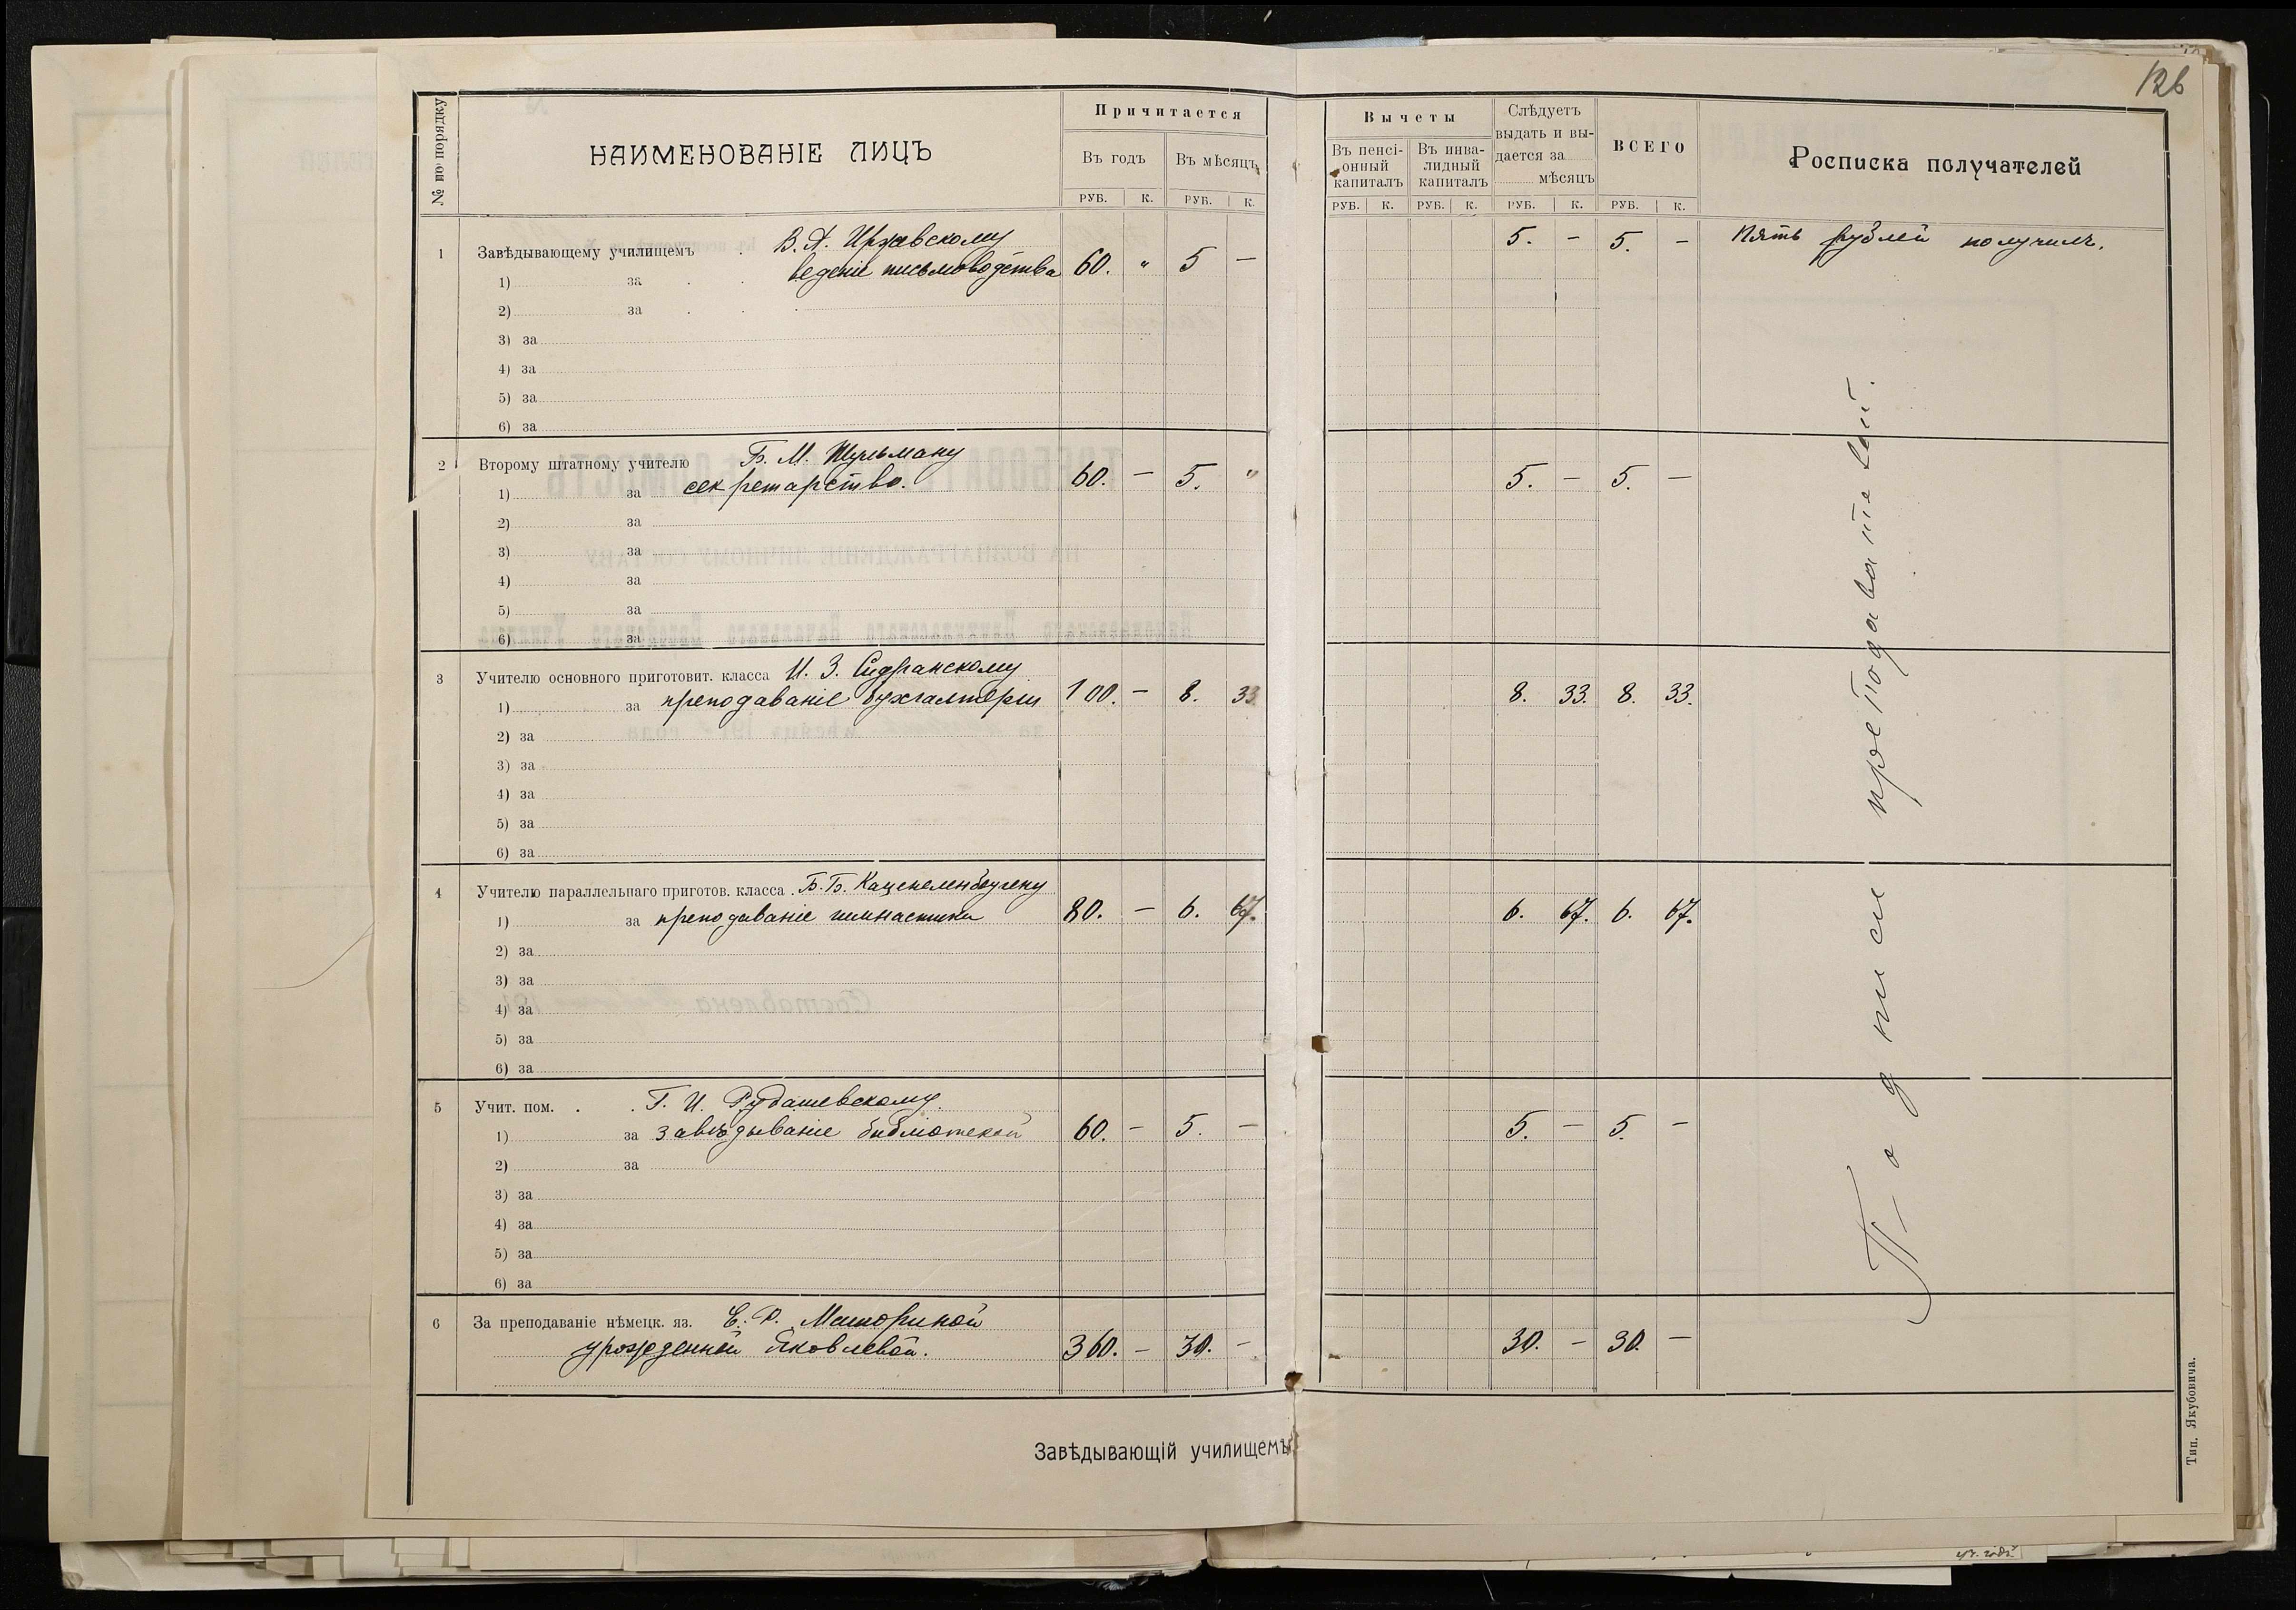 126
№ по порядку
НАИМЕНОВАНІЕ ЛИЦЪ
Причитается
Въ годъ
Въ мѣсяцъ
РУБ. К. РУБ. К.
Вычеты
Въ пенсі-
онный
капиталъ
Въ инва-
лидный
капиталъ
Слѣдуетъ
выдать и вы-
дается за
мѣсяцъ
ВСЕГО
Росписка получателей
РУБ. К. РУБ. К. РУБ. К. РУБ. К.
1 Завѣдывающему училищемъ В. А. 5. — 5. — Пять рублей получилъ.
1) за веденіе письмоводства 60. " 5 —
2) за
3) за
4) за
5) за
6) за
2 Второму штатному учителю Б. М. Шульману
1) за секретарство. 60. — 5. " 5. — 5. —
2) за
3) за
4) за
5) за
6) за
3 Учителю основного приготовит. класса И. З. Сидранскому
1) за преподаваніе бухгалтеріи 100. — 8. 33 8. 33. 8. 33.
2) за
3) за
4) за
5) за
6) за
4 Учителю параллельнаго приготов. класса Б. Б. Каценеленбогену
1) за преподаваніе гимнастики 80. — 6. 67. 6. 67. 6. 67.
2) за
3) за
4) за
5) за
6) за
5 Учит. пом. Г. И. Рудашевскому.
1) за завѣдываніе библіотекой 60. — 5. — 5. — 5. —
2) за
3) за
4) за
5) за
6) за
6 За преподаваніе нѣмецк. яз.
урожденной Яковлевой. 360. — 30. — 30. — 30. —
Подписи преподавателей.
Завѣдывающій училищемъ
Тип. Якубовича.